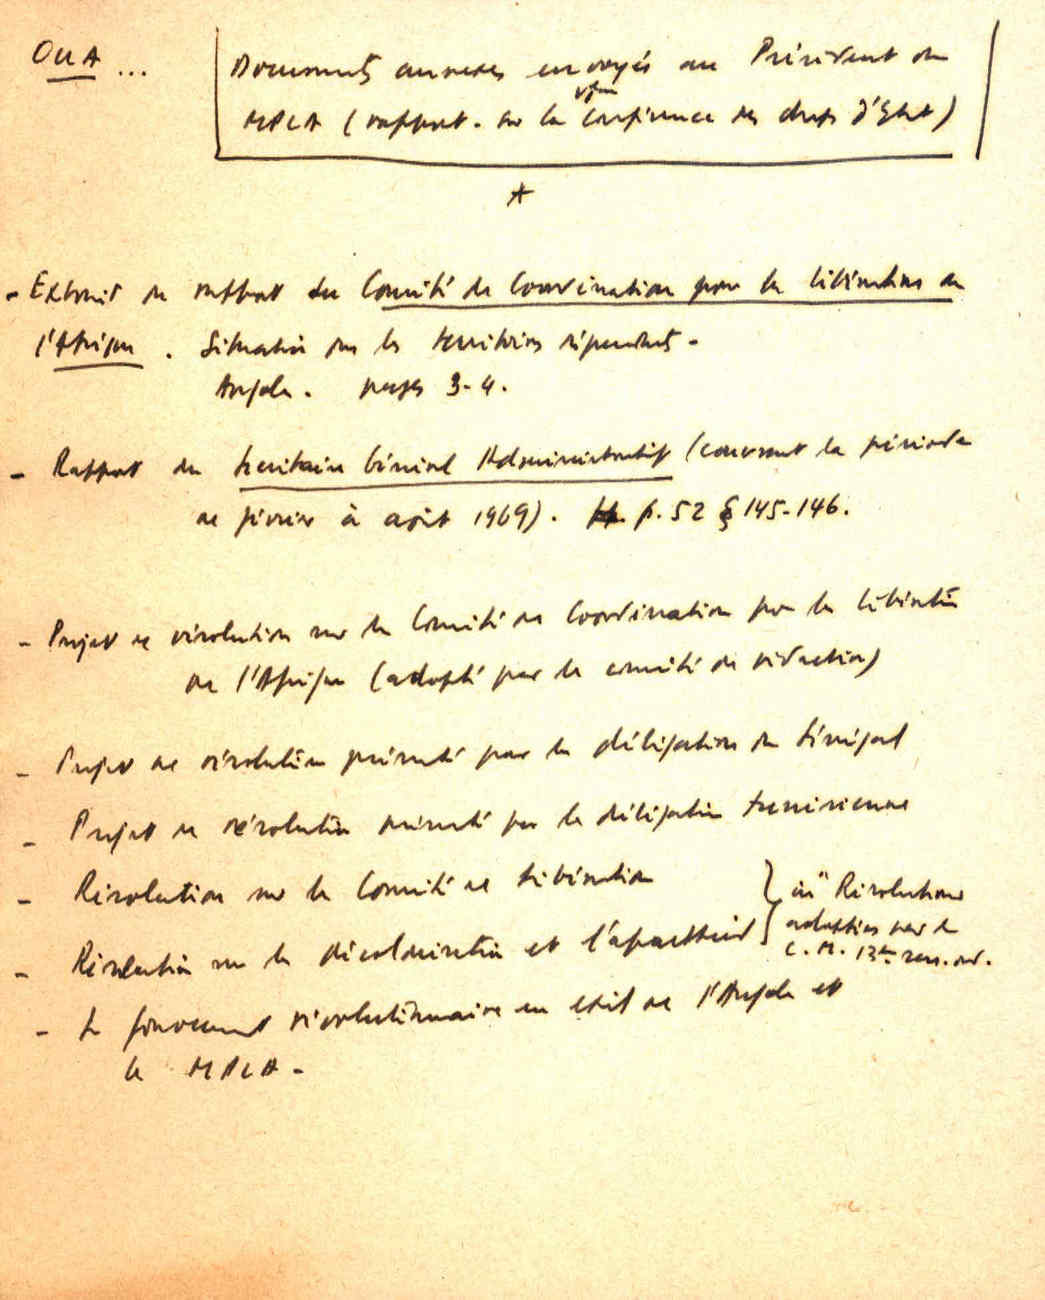 OUA ...
Documents annexes envoyés au Président du
MPLA (rapport. sur la Conférence des chefs d'Etat)
- Extrait du rapport du Comité de Coordination pour la libération de
l'Afrique. Situation dans les territoires dépendants -
Angola. pages 3-4.
- Rapport du Secrétaire Général Administratif (couvrant la période
de février à août 1969). p. 52 § 145-146.
- Projet de résolution sur le Comité de Coordination pour la libération
de l'Afrique (adopté par le comité de rédaction)
- Projet de résolution présenté par la délégation du Sénégal
- Projet de résolution présenté par la délégation tunisienne
- Résolution sur le Comité de Libération
- Résolution sur la décolonisation et l'apartheid
in "Résolutions
adoptées par le
C. M. 13e sess. ord.
- Le gouvernement révolutionnaire en exil de l'Angola et
le MPLA -